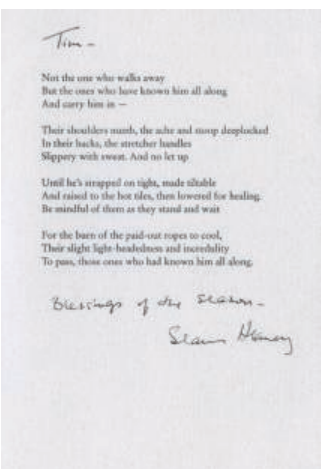 Tim -
Not the one who walks away
But the ones who have known him all along
And carry him in —
Their shoulders numb, the ache and stoop deeplocked
In their backs, the stretcher handles
Slippery with sweat. And no let up
Until he's strapped on tight, made tiltable
And raised to the hot tiles, then lowered for healing.
Be mindful of them as they stand and wait
For the burn of the paid-out ropes to cool,
Their slight light-headedness and incredulity
To pass, those ones who had known him all along.
Blessings of the season -
Seamus Heaney